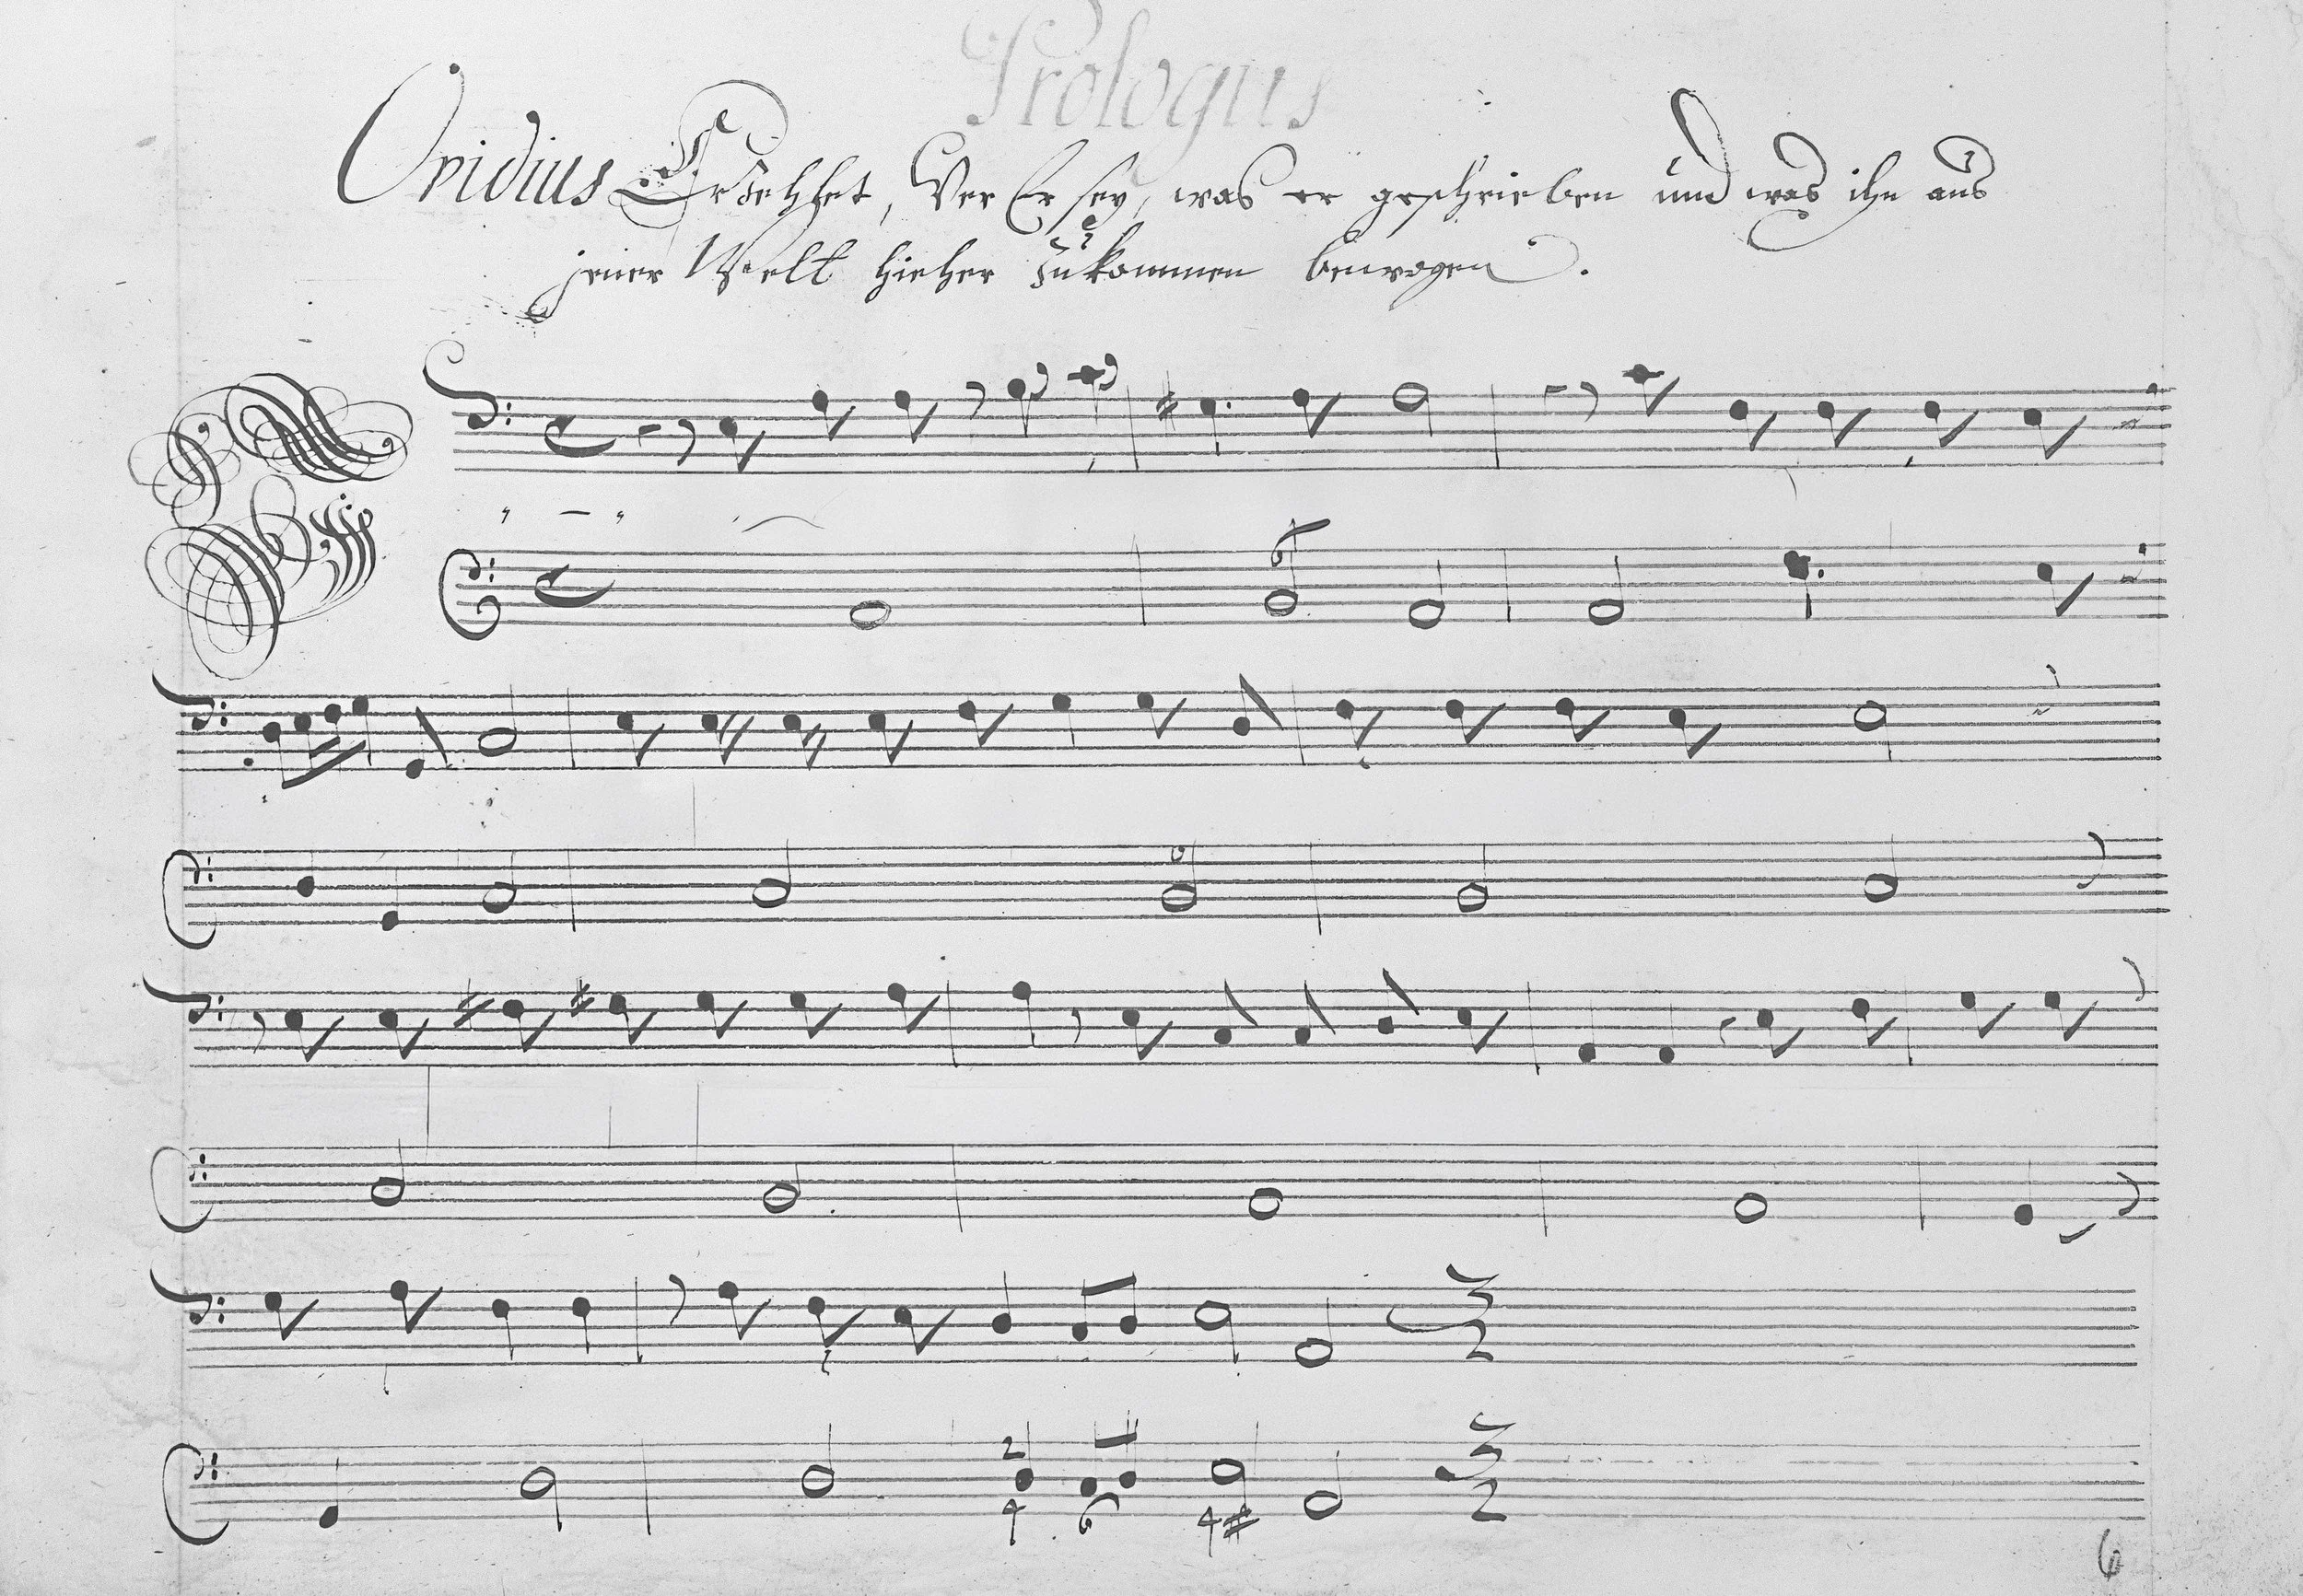 Prologus
Ovidius Erzehlet, Wer Er sey, was er geschrieben und was ihn aus
jener Welt hieher zukommen bewogen.
6
2
4 6 4#
6